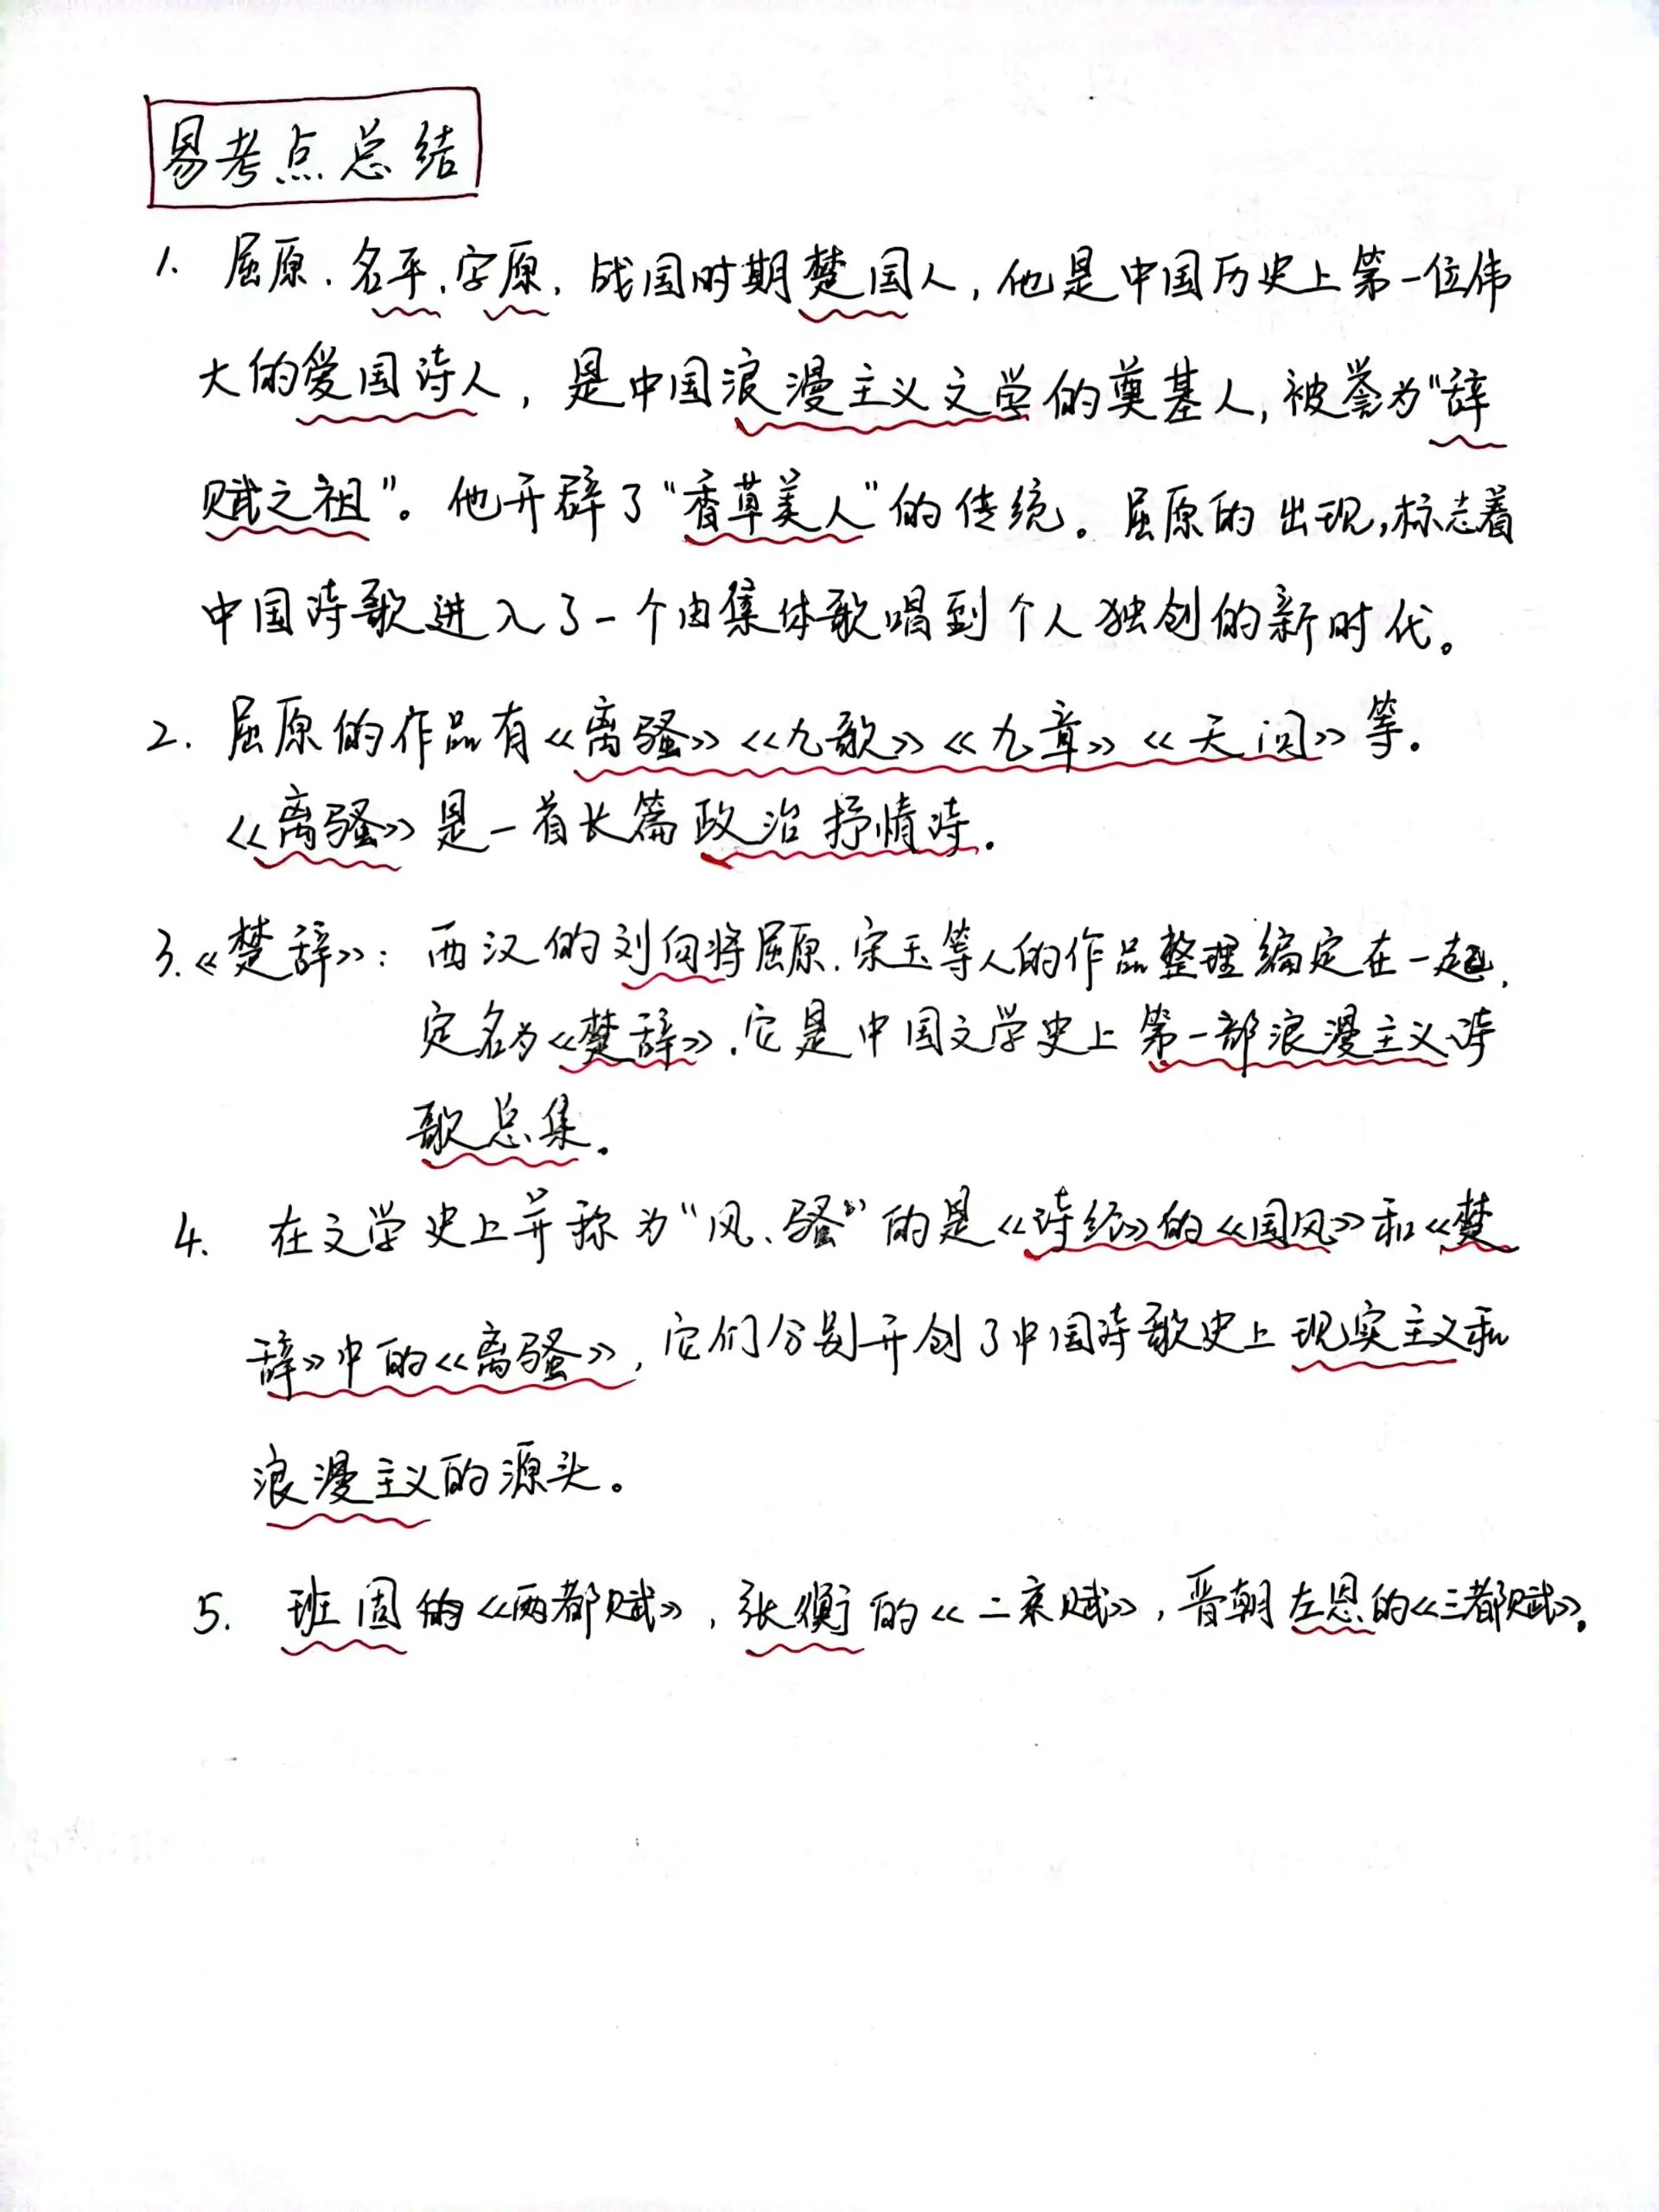 易考点总结
1. 屈原、名平、字原，战国时期楚国人，他是中国历史上第一位伟
大的爱国诗人，是中国浪漫主义文学的奠基人，被誉为“辞
赋之祖”。他开辟了“香草美人”的传统。屈原的出现，标志着
中国诗歌进入了一个由集体歌唱到个人独创的新时代。
2. 屈原的作品有《离骚》《九歌》《九章》《天问》等.
《离骚》是一首长篇政治抒情诗.
3.《楚辞》：西汉的刘向将屈原、宋玉等人的作品整理编定在一起，
定名为《楚辞》，它是中国文学史上第一部浪漫主义诗
歌总集.
4. 在文学史上并称为“风、骚”的是《诗经》的《国风》和《楚
辞》中的《离骚》，它们分别开创了中国诗歌史上现实主义和
浪漫主义的源头。
5. 班固的《两都赋》，张衡的《二京赋》，晋朝左思的《三都赋》。